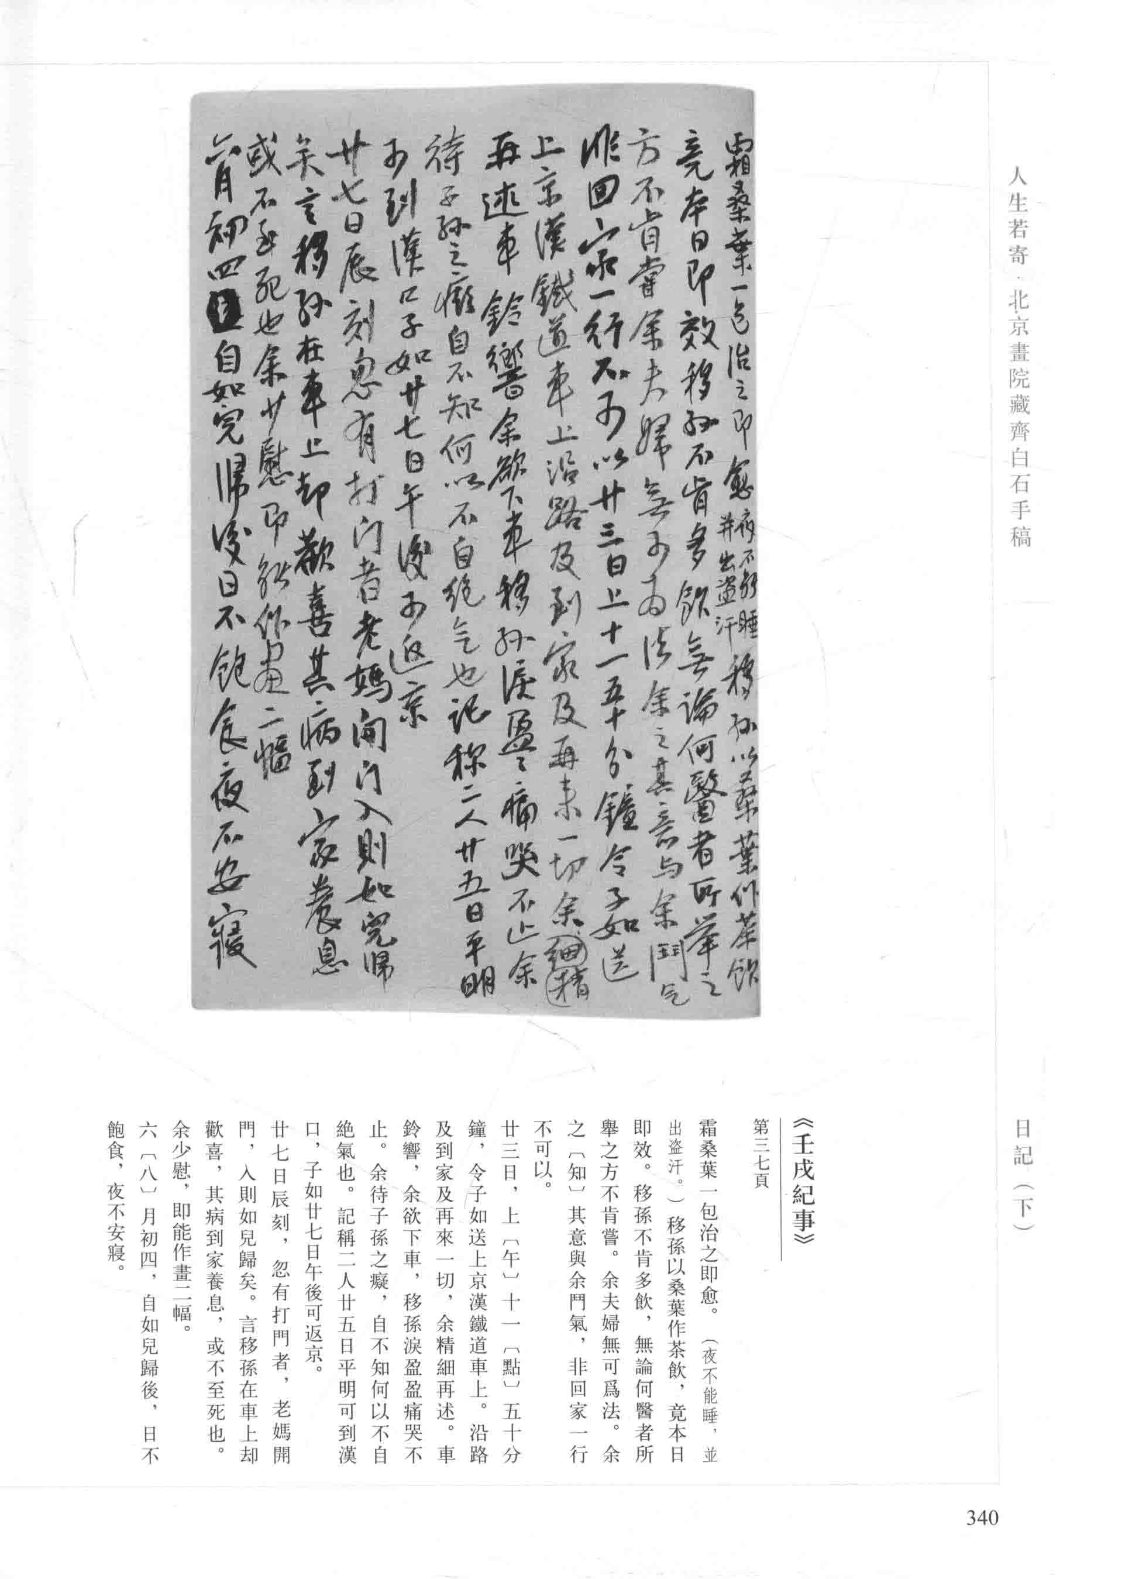 人生若寄·北京畫院藏齊白石手稿
日記（下）
霜桑葉一包治之即愈夜不能睡並出盜汗移孫以桑葉作茶飲
竟本日即效移孫不肯多飲無論何醫者所舉之
方不肯嘗余夫婦無可為法余之其意与余鬥气
非回家一行不可以廿三日上十一五十分鐘令子如送
上京漢鐵道車上沿路及到家及再來一切余細精
再述車鈴響余欲下車移孫淚盈盈痛哭不止余
待子孫之癡自不知何以不自絕气也記称二人廿五日平明
可到漢口子如廿七日午後可返京
廿七日辰刻忽有打门者老媽開门入則如兒歸
矣言移孫在車上却歡喜其病到家養息
或不至死也余少慰即能作畫二幅
六月初四日自如兒歸後日不飽食夜不安寢
《壬戌紀事》
第三七頁
霜桑葉一包治之即愈。（夜不能睡，並
出盜汗。）移孫以桑葉作茶飲，竟本日
即效。移孫不肯多飲，無論何醫者所
舉之方不肯嘗。余夫婦無可爲法。余
之〔知〕其意與余鬥氣，非回家一行
不可以。
廿三日，上〔午〕十一〔點〕五十分
鐘，令子如送上京漢鐵道車上。沿路
及到家及再來一切，余精細再述。車
鈴響，余欲下車，移孫淚盈盈痛哭不
止。余待子孫之癡，自不知何以不自
絕氣也。記稱二人廿五日平明可到漢
口，子如廿七日午後可返京。
廿七日辰刻，忽有打門者，老媽開
門，入則如兒歸矣。言移孫在車上却
歡喜，其病到家養息，或不至死也。
余少慰，即能作畫二幅。
六〔八〕月初四，自如兒歸後，日不
飽食，夜不安寢。
340